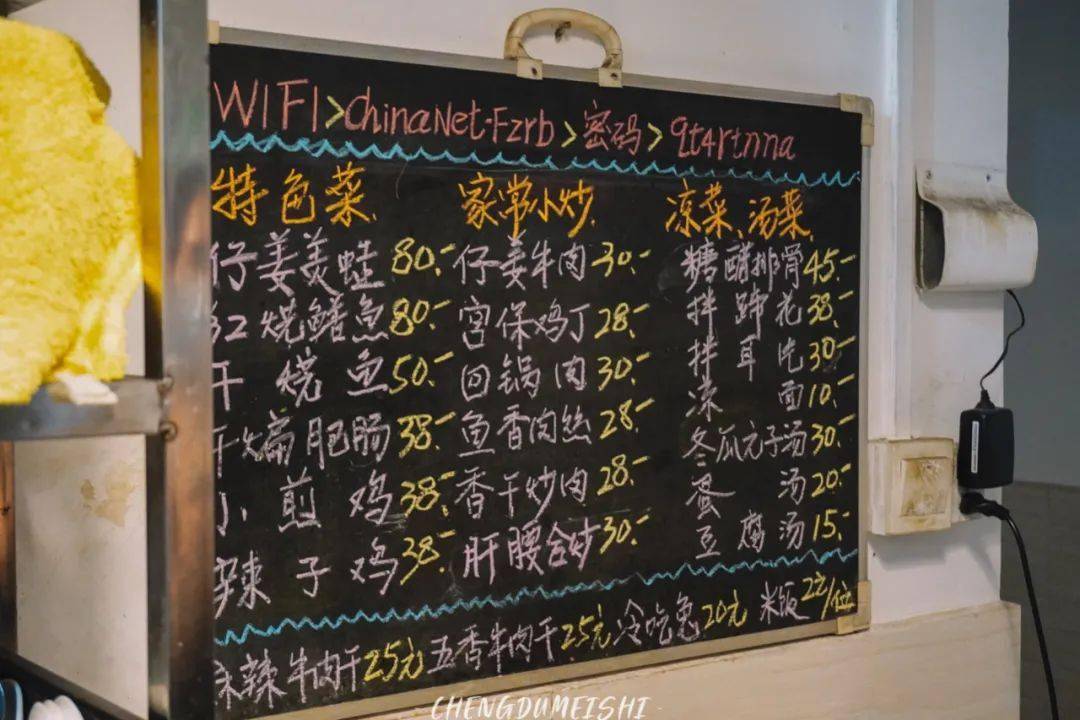 WIFI>chinaNet-Fzrb>密码>9t4rtnna
特色菜、 家常小炒、 凉菜、汤菜
仔姜美蛙 80.- 仔姜牛肉 30.- 糖醋排骨 45.-
烧鳝鱼 80.- 宫保鸡丁 28.- 拌蹄花 38.-
干烧鱼 50.- 回锅肉 30.- 拌耳片 30.-
干煸肥肠 38.- 鱼香肉丝 28.- 凉面 10.-
小煎鸡 38.- 香干炒肉 28.- 冬瓜元子汤 30.-
辣子鸡 38.- 肝腰合炒 30.- 蛋汤 20.-
豆腐汤 15.-
麻辣牛肉干 25元 五香牛肉干 25元 冷吃兔 20元 米饭 2元/位
CHENGDUMEISHI